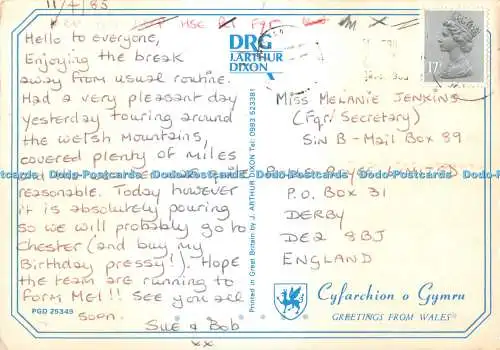 11/4/85
Hello to everyone,
Enjoying the break
away from usual routine.
Had a very pleasant day
yesterday touring around
the Welsh Mountains,
covered plenty of miles
reasonable. Today however
it is absolutely pouring
so we will probably go to
Chester (and buy my
Birthday pressy!). Hope
the team are running to
form Mel!! See you all
soon.
Sue & Bob
xx
PGD 25349
DRG
J.ARTHUR
DIXON
Printed in Great Britain by J. ARTHUR DIXON Tel: 0983 523381
17P
Miss Melanie Jenkins
(Fgr. Secretary)
Sin B - Mail Box 89
P.O. Box 31
Derby
DE2 8BJ
England
Cyfarchion o Gymru
GREETINGS FROM WALES
Postcard Dodo-Postcard Dodo-Postcard Dodo-Postcard Dodo-Postcard Dodo-Postcard